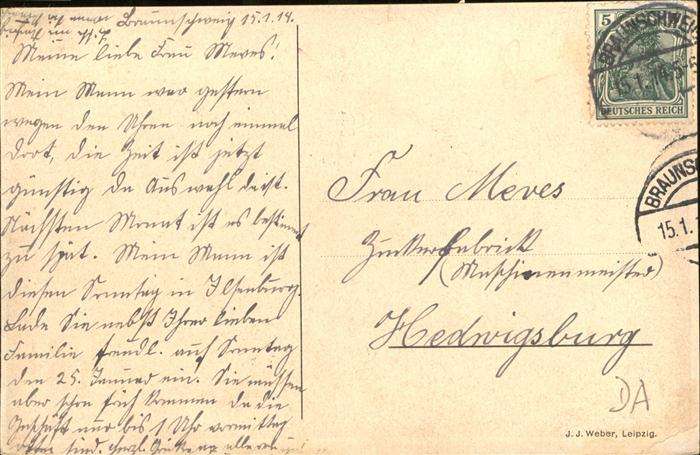 Braunschweig 15.1.14.
Meine liebe Frau Meves!
Mein Mann war gestern
wegen den Uhren noch einmal
dort, die Zeit ist jetzt
günstig da Auswahl da ist.
Nächsten Monat ist es bestimmt
zu spät. Mein Mann ist
diesen Sonntag in Ilsenburg.
Lade Sie nebst Ihrer lieben
Familie freudl. auf Sonntag
den 25. Januar ein. Sie müssen
aber schon früh kommen da die
Geschäft nur bis 1 Uhr vormittag
sind. herzl.
5
DEUTSCHES REICH
BRAUNSCHWEIG
15.1.14
BRAUNS
15.1.
Frau Meves
Zuckerfabrick
(Maschinenmeister)
Hedwigsburg
DA
J. J. Weber, Leipzig.